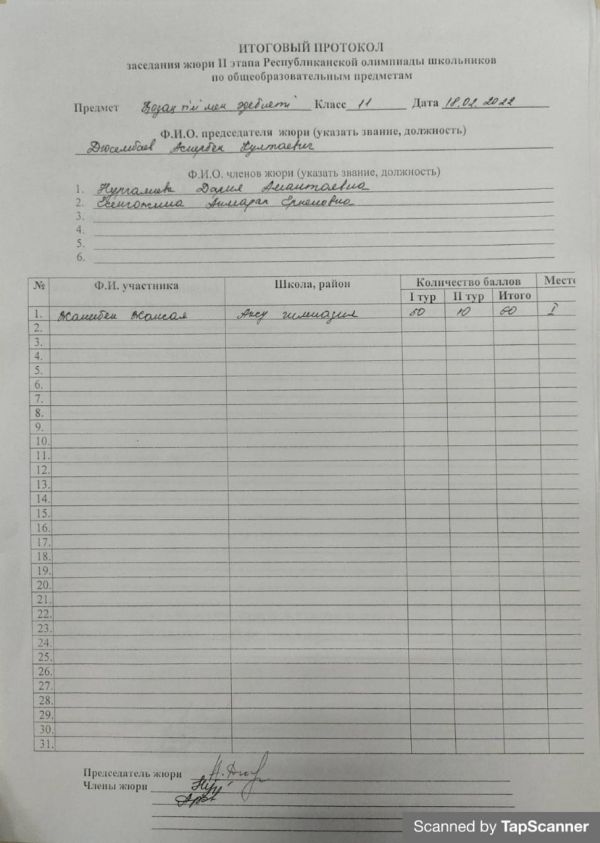 ИТОГОВЫЙ ПРОТОКОЛ
заседания жюри II этапа Республиканской олимпиады школьников
по общеобразовательным предметам
Предмет Қазақ тілі мен әдебиеті Класс 11 Дата 18.02.2022
Ф.И.О. председателя жюри (указать звание, должность)
Дюсембаев
Ф.И.О. членов жюри (указать звание, должность)
1. Нургалиева Дария Амантаевна
2. Ерменовна
3.
4.
5.
6.
№ Ф.И. участника Школа, район Количество баллов Место
I тур II тур Итого
1. Жансая Аксу гимназия 50 10 60 I
2.
3.
4.
5.
6.
7.
8.
9.
10.
11.
12.
13.
14.
15.
16.
17.
18.
19.
20.
21.
22.
23.
24.
25.
26.
27.
28.
29.
30.
31.
Председатель жюри
Члены жюри
Scanned by TapScanner